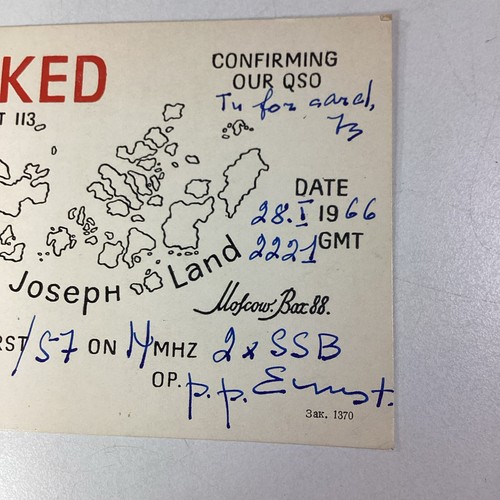 KED
CONFIRMING
OUR QSO
T 113
Tu for card,
73
DATE
28.I 1966
2221 GMT
Joseph Land
Moscow. Box 88.
RST/57 ON 14 MHZ 2 x SSB
OP. p.p. Ernst.
Зак. 1370